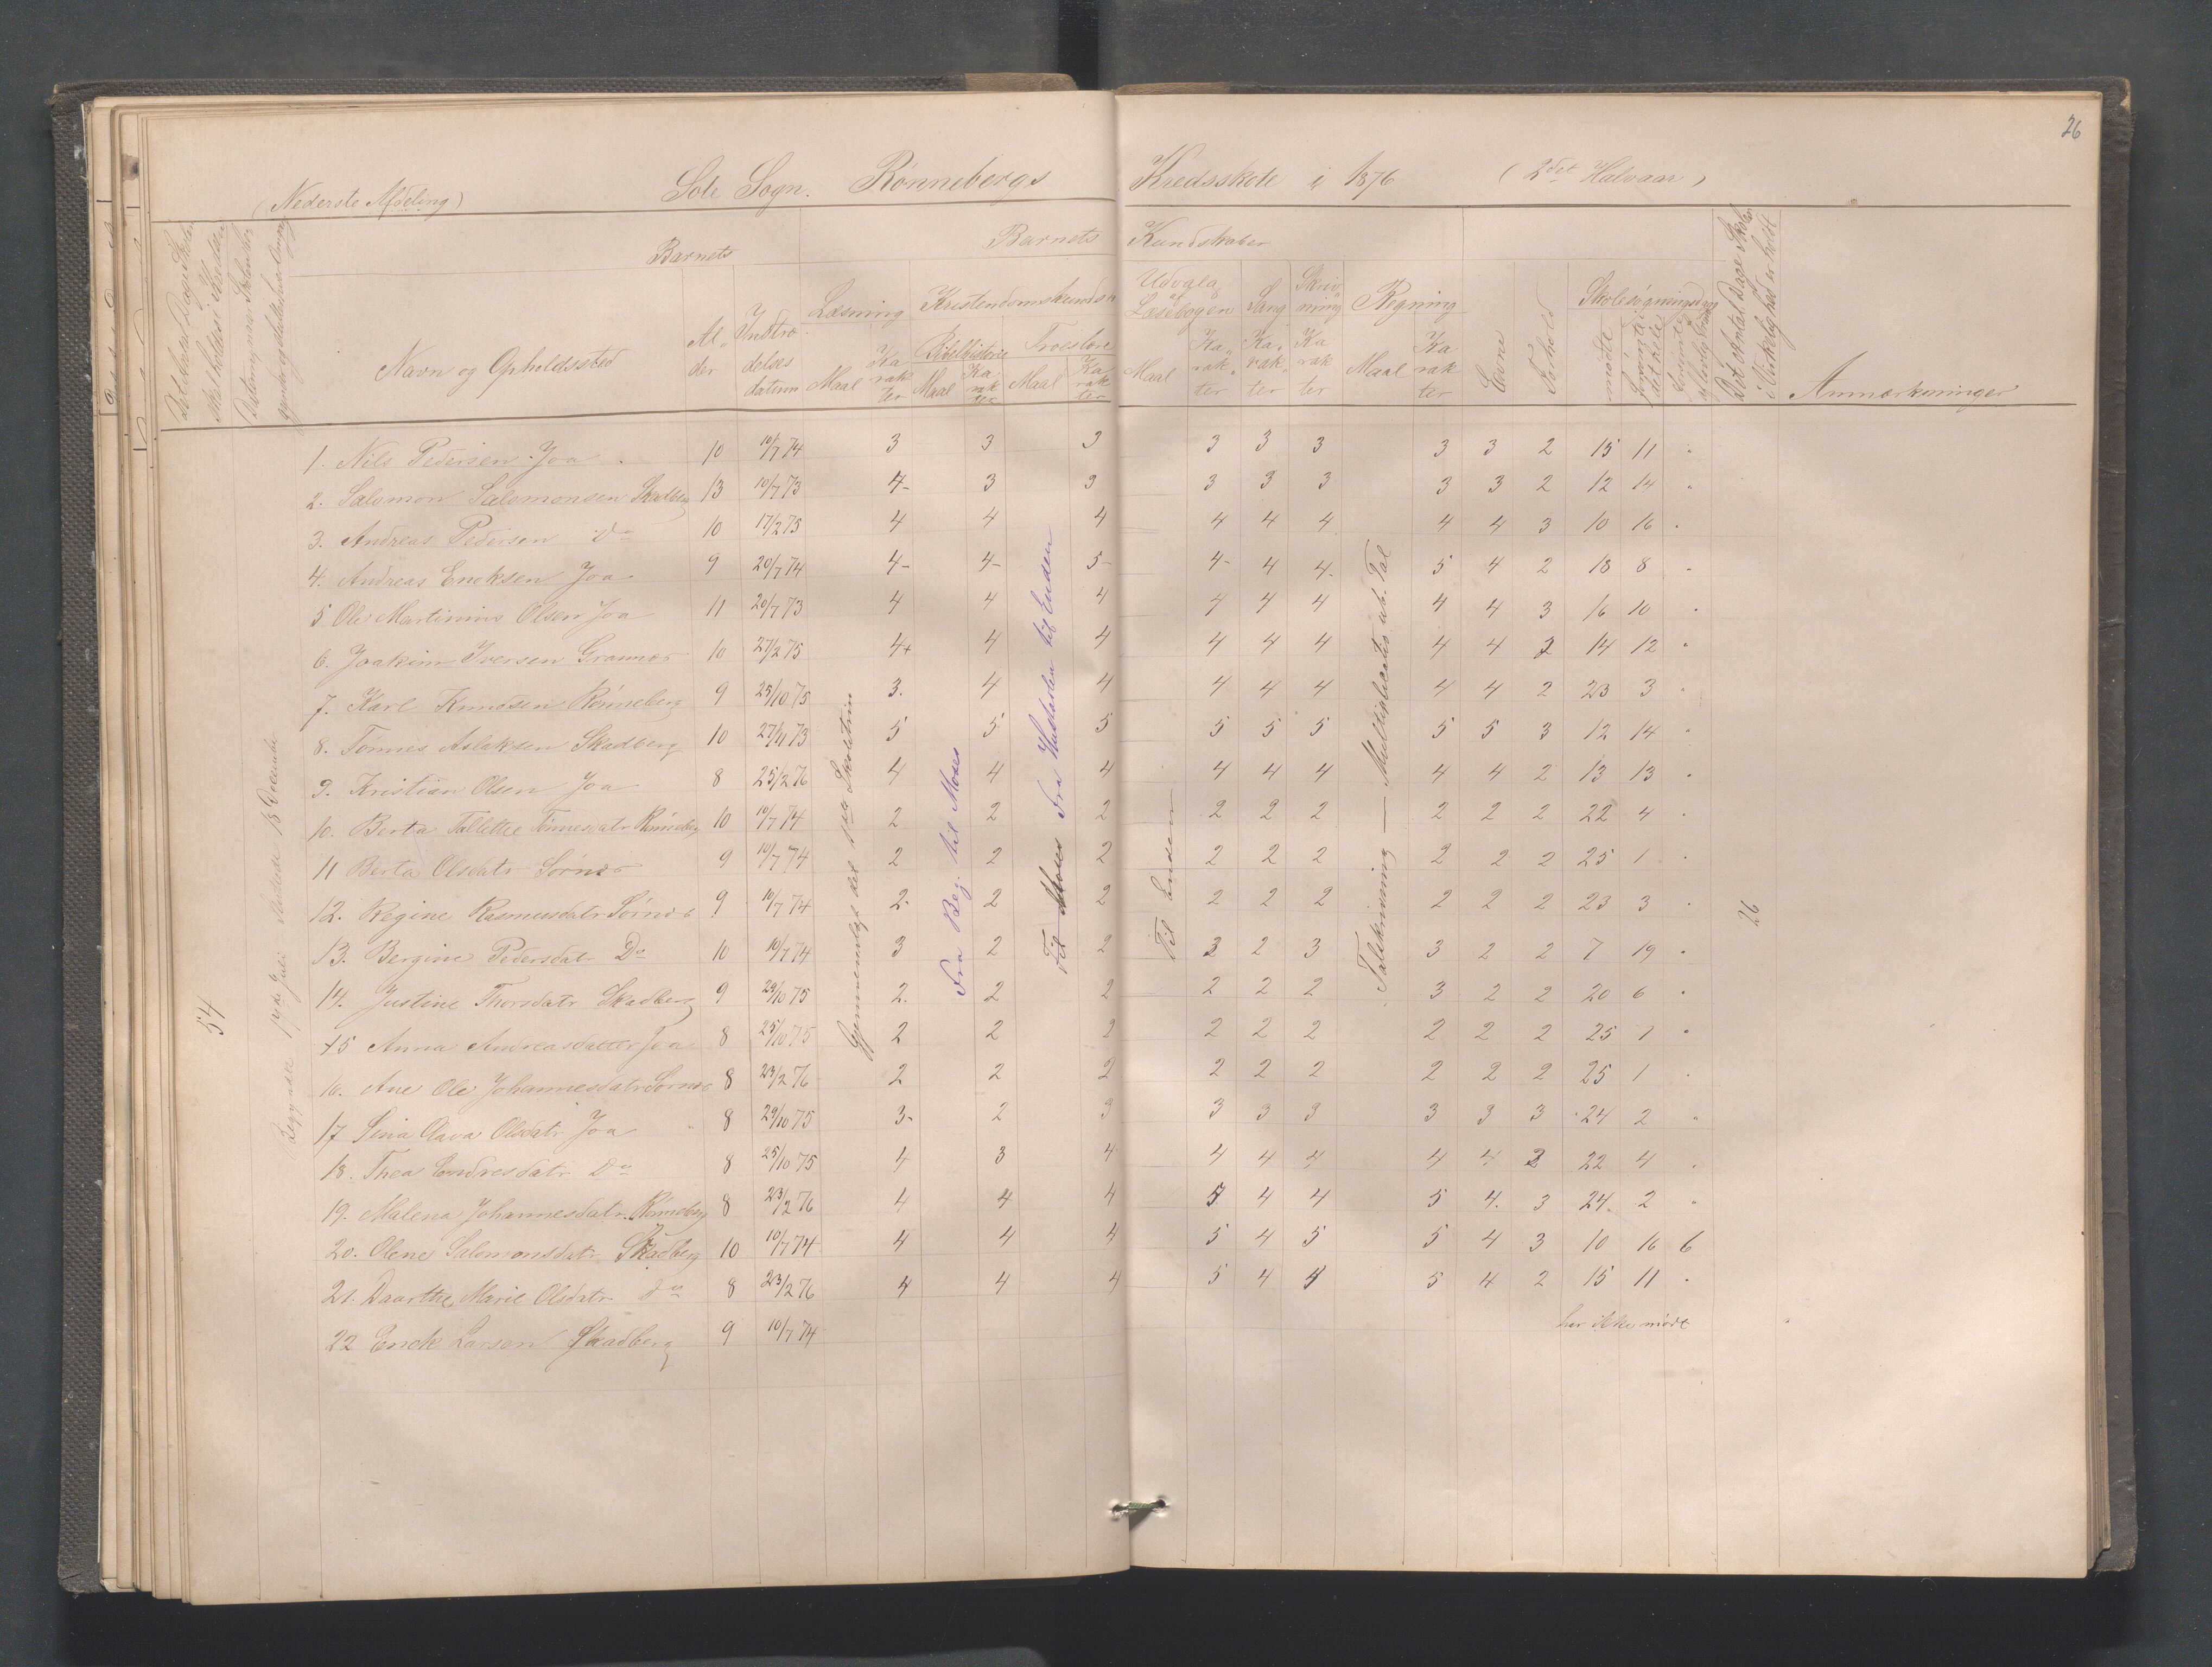 26
(Nederste Afdeling) Sole Sogn. Rønnebergs Kredsskole i 1876 (2det Halvaar)
Barnets
Barnets Kundskaber
Navn og Opholdssted
Al-
der
Indtræ-
delses
datum
Læsning
Maal
Ka
rak
ter
Kristendomskundsk
Bibelhistorie
Maal
Ka
rak
ter
Troeslære
Maal
Ka
rak
ter
Udvalg
af
Læsebogen
Maal
Ka-
rak-
ter
Sang
Ka-
rak-
ter
Skriv
ning
Ka
rak
ter
Regning
Maal
Ka
rak
ter
Evne
Forhold
Skolesøgningsdage
mødte
forsømte i
det hele
Det Antal Dage Skolen
i Virkelighed er holdt
Anmærkninger
54
Begyndte 17de Juli sluttede 18 December
Gjennemlagt det 1ste Skoletrin
Fra Beg. til Moses
Til Moses Fra Hustavlen til Enden
Til Enden
Talskrivning — Multiplicatis ub. Tal
26
1. Nils Pedersen Joa 10 10/7 74 3 3 3 3 3 3 3 3 2 15 11 "
2. Salomon Salomonsen Skadberg 13 10/7 73 4- 3 3 3 3 3 3 3 2 12 14 "
3. Andreas Pedersen Do 10 17/2 75 4 4 4 4 4 4 4 4 3 10 16 "
4. Andreas Ericksen Joa 9 20/7 74 4- 4- 5- 4- 4 4. 5 4 2 18 8 "
5 Ole Martinius Olsen Joa 11 20/7 73 4 4 4 4 4 4 4 4 3 16 10 "
6. Joakim Iversen Grannes 10 27/2 75 4+ 4 4 4 4 4 4 4 2 14 12 "
7. Karl Knudsen Rønneberg 9 25/10 75 3. 4 4 4 4 4 4 4 2 23 3 "
8. Tønnes Aslaksen Skadberg 10 27/4 73 5 5 5 5 5 5 5 5 3 12 14 "
9. Kristian Olsen Joa 8 25/2 76 4 4 4 4 4 4 4 4 2 13 13 "
10. Berta Tallette Tønnesdatr Rønneberg 10 10/7 74 2 2 2 2 2 2 2 2 2 22 4 "
11 Berta Olsdatr Sørnes 9 10/7 74 2 2 2 2 2 2 2 2 2 25 1 "
12. Regine Rasmusdatr Sørnes 9 10/7 74 2. 2 2 2 2 2 2 2 2 23 3 "
13. Bergine Pedersdatr Do 10 10/7 74 3 2 2 3 2 3 3 2 2 7 19 "
14. Justine Thorsdatr Skadberg 9 29/10 75 2. 2 2 2 2 2 3 2 2 20 6 "
15 Anna Andreasdatter Joa 8 25/10 75 2 2 2 2 2 2 2 2 2 25 1 "
16. Ane Ole Johannesdatr Sørnes 8 23/2 76 2 2 2 2 2 2 2 2 2 25 1 "
17 Sina Olava Olsdatr Joa 8 29/10 75 3- 2 3 3 3 3 3 3 3 24 2 "
18. Thea Endresdatr Do 8 25/10 75 4 3 4 4 4 4 4 4 2 22 4 "
19. Malena Johannesdatr. Rønneberg 8 23/2 76 4 4 4 5 4 4 5 4. 3 24. 2 "
20. Olene Salomonsdatr Skadberg 10 10/7 74 4 4 4 5 4 5 5 4 3 10 16 6
21. Daarthe Marie Olsdatr Do 8 23/2 76 4 4 4 5 4 4 5 4 2 15 11 "
22 Erick Larsen Skadberg 9 10/7 74 har ikke mødt